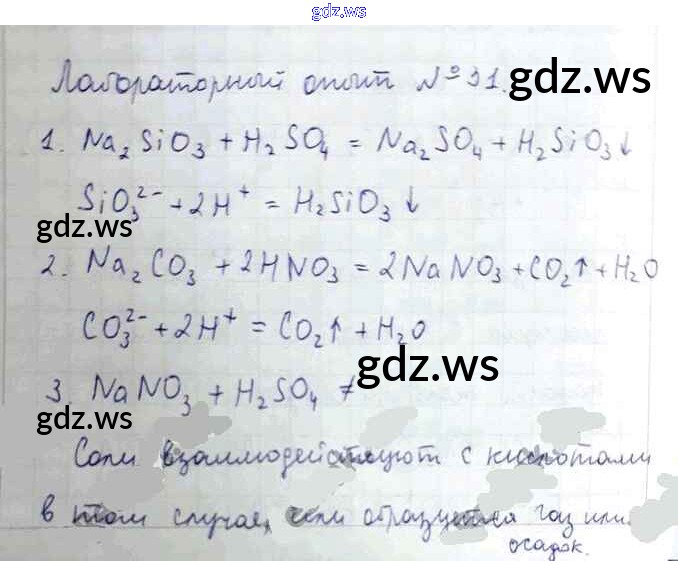 gdz.ws
Лабораторный опыт №31.
gdz.ws
1. Na₂SiO₃ + H₂SO₄ = Na₂SO₄ + H₂SiO₃↓
SiO₃²⁻ + 2H⁺ = H₂SiO₃↓
gdz.ws
2. Na₂CO₃ + 2HNO₃ = 2NaNO₃ + CO₂↑ + H₂O
CO₃²⁻ + 2H⁺ = CO₂↑ + H₂O
gdz.ws
3. NaNO₃ + H₂SO₄ ≠
gdz.ws
Соли взаимодействуют с кислотами
в том случае, если образуется газ или
осадок.